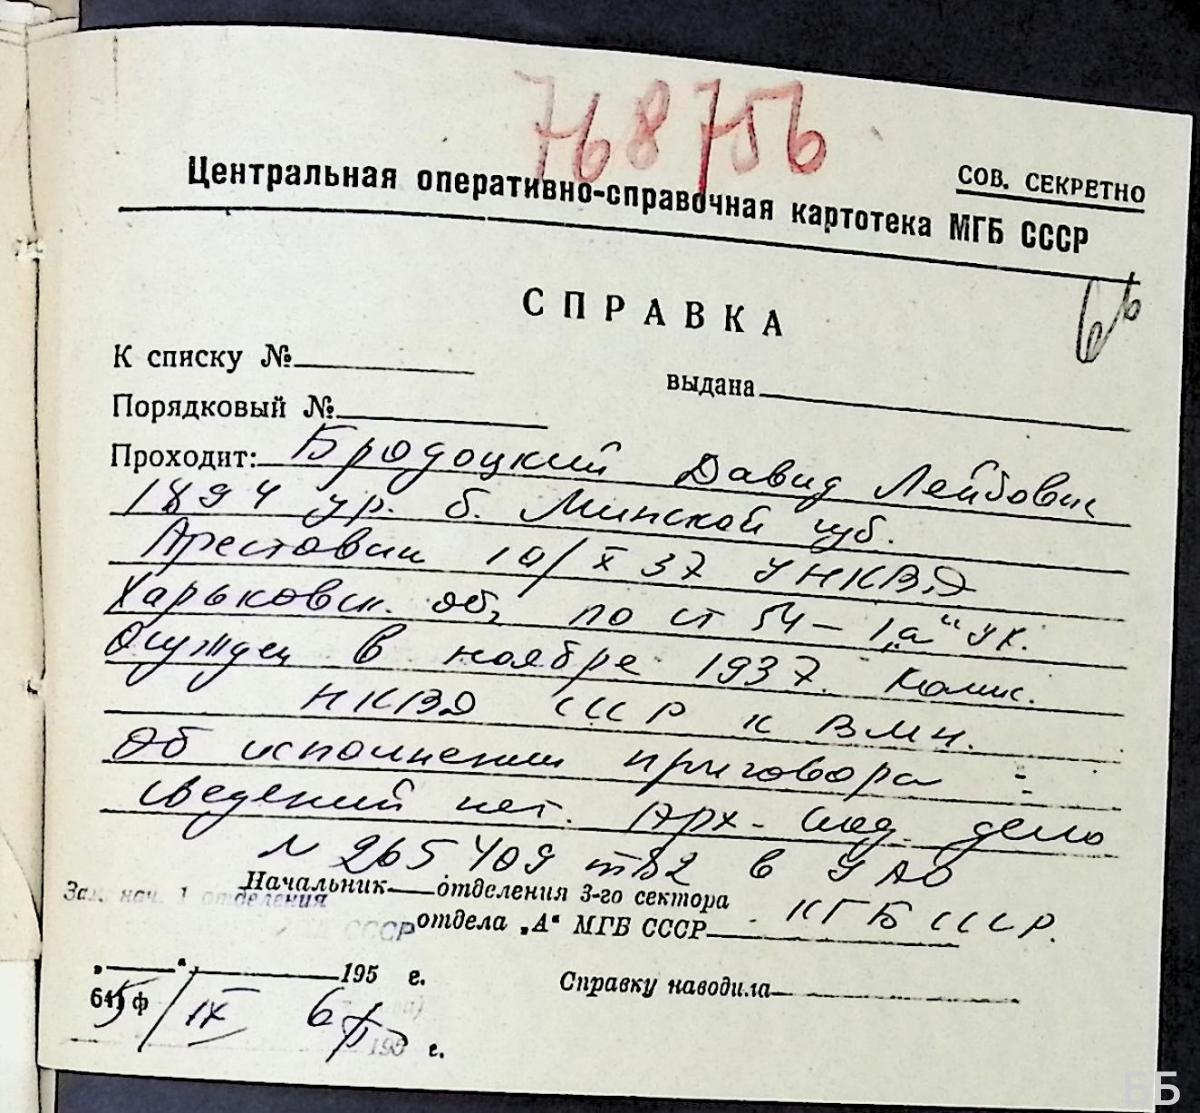 768756
СОВ. СЕКРЕТНО
Центральная оперативно-справочная картотека МГБ СССР
66
СПРАВКА
К списку №
выдана
Порядковый №
Проходит: Бродоцкий Давид Лейбович
1894 ур. б. Минской губ.
Арестован 10/X 37 УНКВД
Харьковск. об. по ст 54-1"а" УК.
Осужден в ноябре 1937. Комис.
НКВД СССР к ВМН.
Об исполнении приговора -
сведений нет. Арх-след дело
N 265409 в УАО
Начальник отделения 3-го сектора
КГБ СССР.
Зам. нач. 1 отделения
СССР
отдела „А“ МГБ СССР
„ “ 195 г.
Справку наводила
64 ф
5/IX 6
195 г.
ББ